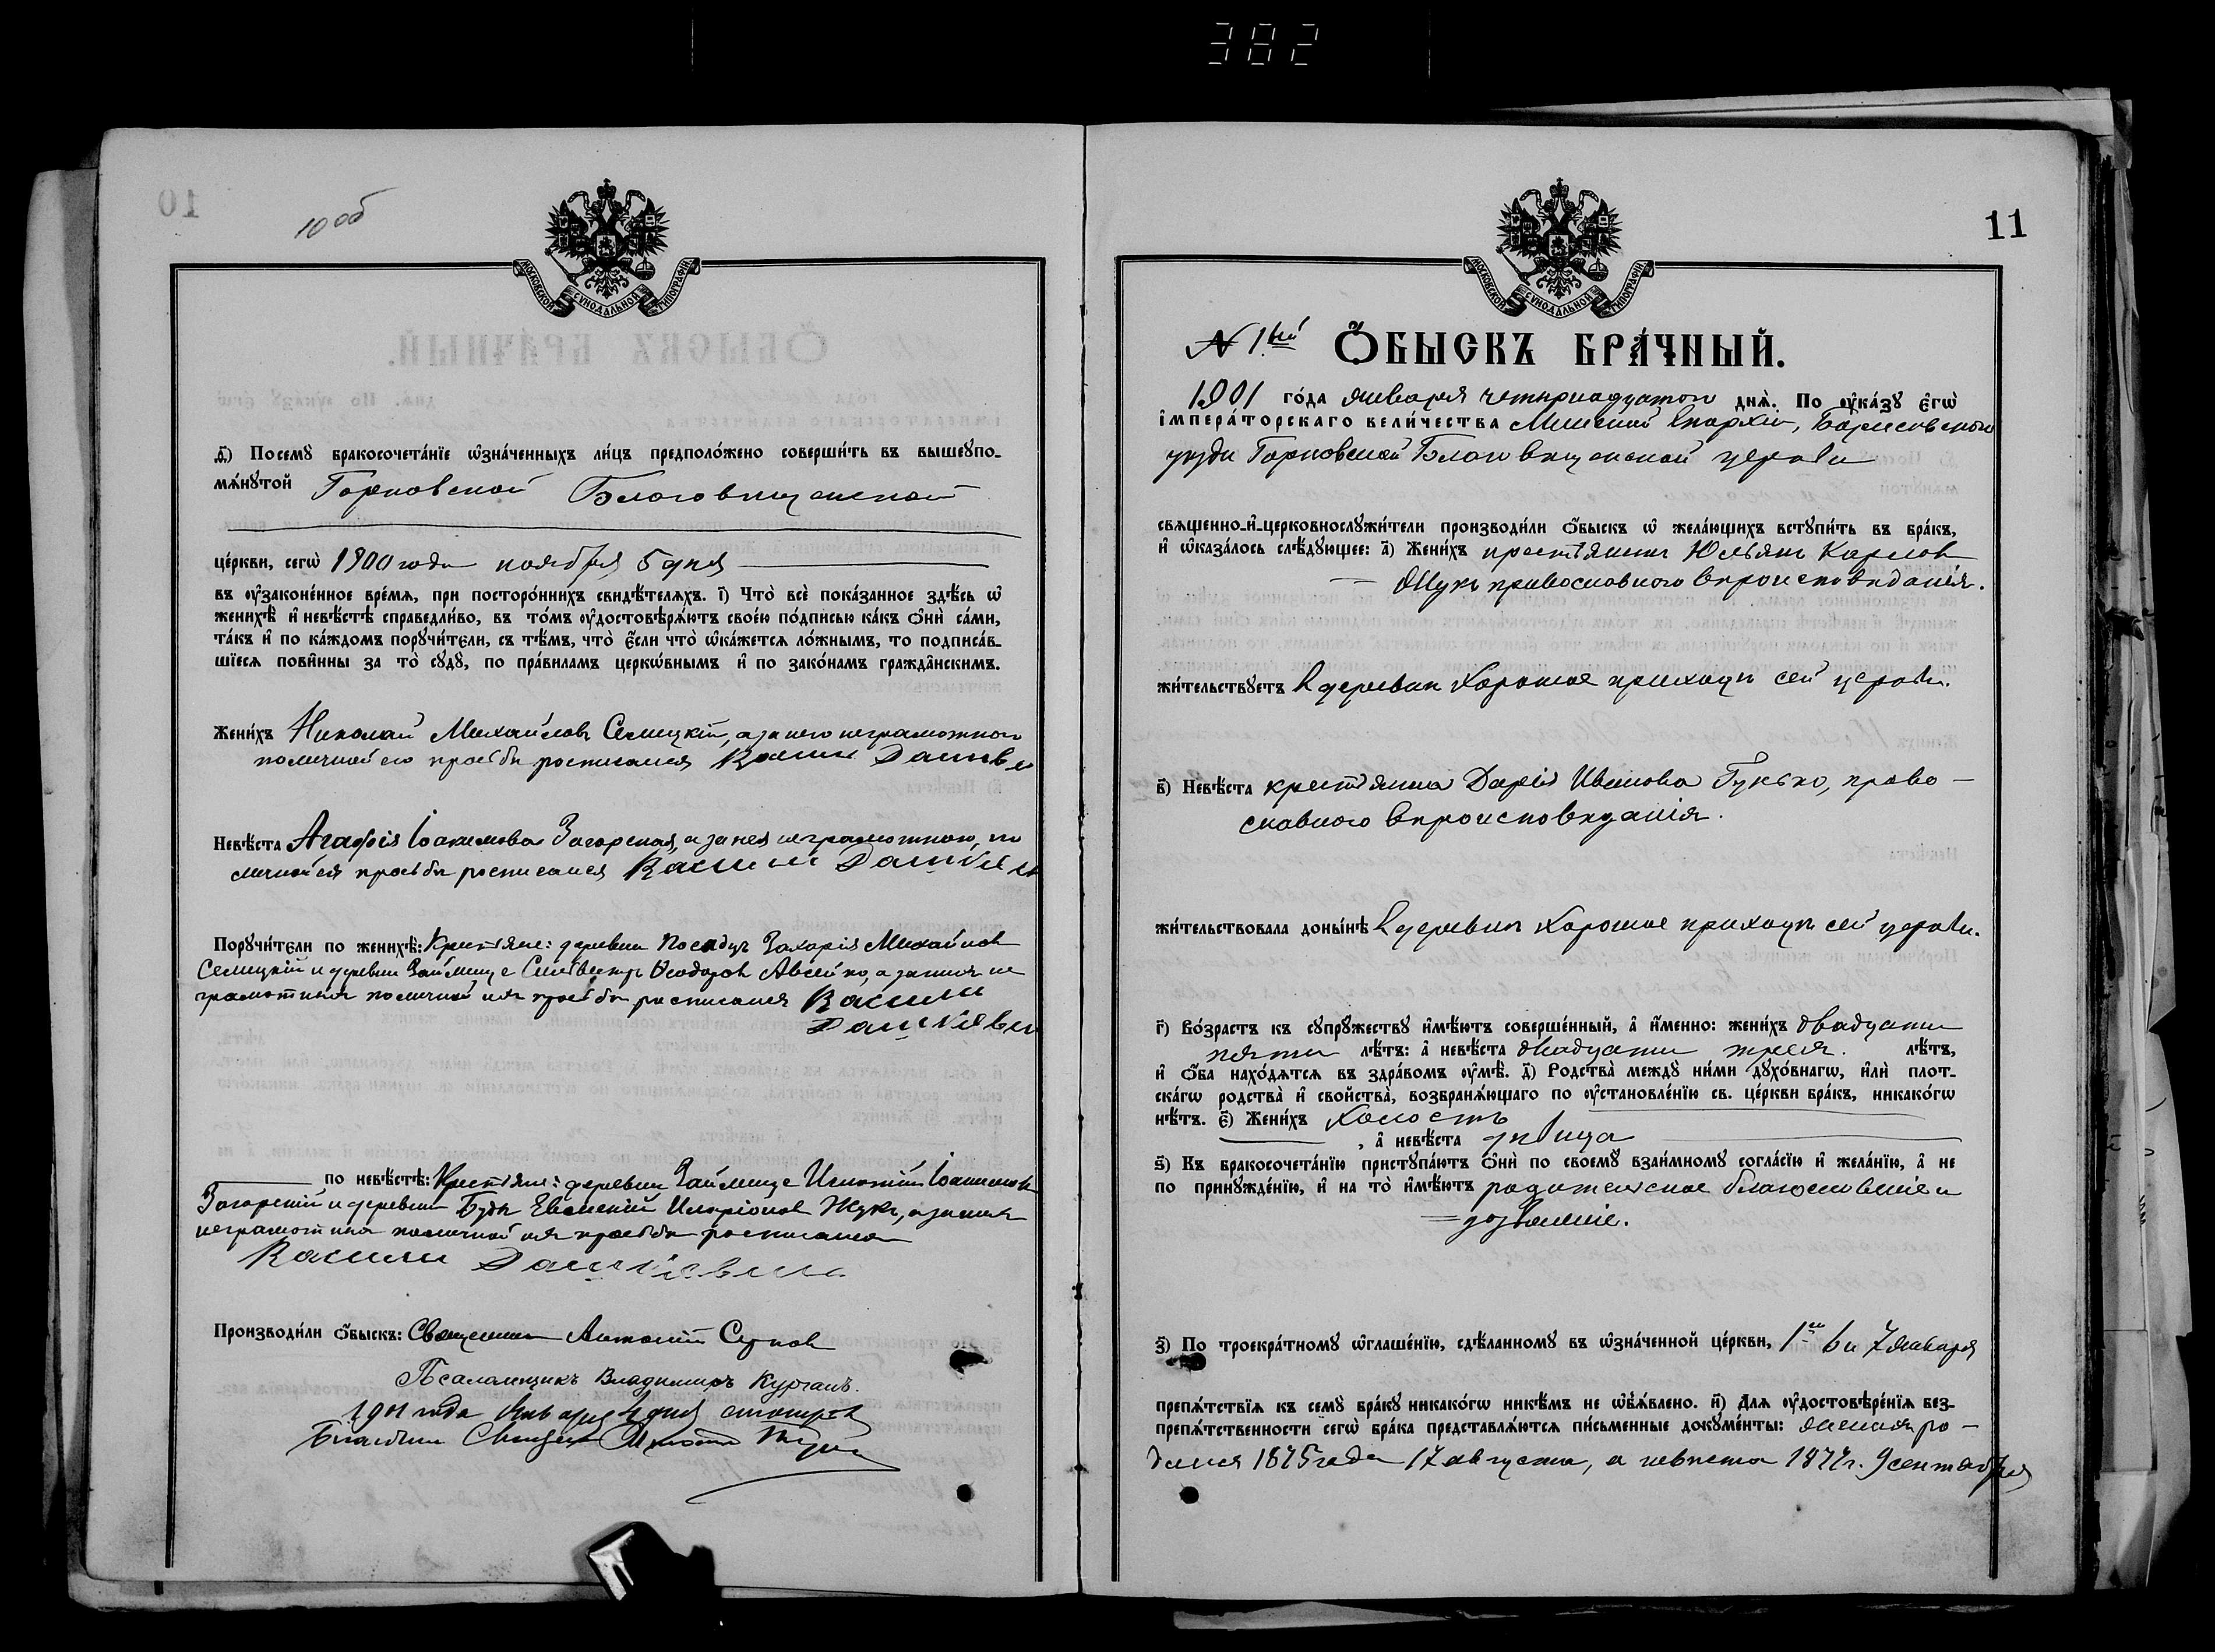 382
10 об
МОСКОВСКОЙ СѴНОДАЛЬНОЙ ТИПОГРАФІИ
Посемꙋ бракосочета́нїе ѡ҆зна́ченныхъ ли́цъ предполо́жено соверши́ть въ вышеꙋпо-
мѧ́нꙋтой Горковской Благовещенской
це́ркви, сегѡ̀ 1900 года ноября 5 дня
въ ᲂу҆зако́ненное вре́мѧ, при посторо́ннихъ свидѣ́телѧхъ. і҃) Что̀ всѐ пока́занное здѣ́сь ѡ҆
женихѣ̀ и҆ невѣ́стѣ справедли́во, въ то́мъ ᲂу҆достовѣрѧ́ютъ свое́ю по́дписью ка́къ ѻ҆нѝ са́ми,
та́къ и҆ по ка́ждомъ порꙋчи́тєли, съ тѣ́мъ, что̀ є҆́сли что̀ ѡ҆ка́жетсѧ ло́жнымъ, то подписа́в-
шїесѧ пови́нны за то̀ сꙋдꙋ̀, по пра́виламъ церко́внымъ и҆ по зако́намъ гражда́нскимъ.
Жени́хъ Николай Михайловъ Семецкій, а за него неграмотнаго
по личной его просьбѣ росписался Василій
Невѣ́ста Агафія Іоакимова Загорская, а за нея неграмотною, по
личной ея просьбѣ росписался Василій Дашкѣвич
Порꙋчи́тєли по женихѣ̀: Крестьяне: деревни Посадъ Захарія Михайлов
Семецкій и деревни Займище Сильвестръ Ѳеодоров Авсейко, а за них не
грамотных по личной их просьбѣ росписался Василій
Дашкѣвич
по невѣ́стѣ: Крестьяне: деревни Займище Игнатій Іоакимовъ
Загорскій и деревни Буда Евгеній Иларіонов Жукъ, а за них
неграмотных по личной их просьбѣ росписался
Василій Дашкѣвич
Производи́ли ѻ҆́быскъ: Священникъ Антоній Сушков
Псаломщикъ Владимиръ Курганъ.
1901 года Января 4 дня
11
МОСКОВСКОЙ СѴНОДАЛЬНОЙ ТИПОГРАФІИ
N 1ый Ѻ҆́БЫСКЪ БРА́ЧНЫЙ.
1901 го́да января четырнадцатого днѧ̀. По ᲂу҆ка́зꙋ є҆гѡ̀
і҆мпера́торскаго вели́чества Минской Епархіи, Борисовскаго
уѣзда Горковской Благовѣщенской церкви
свѧще́нно-и҆-церковнослꙋжи́тели производи́ли ѻ҆́быскъ ѡ҆ жела́ющихъ встꙋпи́ть въ бра́къ,
и҆ ѡ҆каза́лось слѣ́дꙋющее: а҃) Жени́хъ крестьянинъ Юльянъ Карпов
Жукъ православного вѣроисповѣданія.
жи́тельствꙋетъ в деревнѣ Хорошое приходѣ сей церкви.
в҃) Невѣ́ста крестьянка Дарія Иванова Гунько, право-
славного вѣроисповѣданія.
жи́тельствовала доны́нѣ в деревнѣ Хорошое приходѣ сей церкви.
г҃) Во́зрастъ къ сꙋпрꙋ́жествꙋ и҆мѣ́ютъ соверше́нный, а҆ и҆́менно: жени́хъ двадцати
пяти лѣ́тъ: а҆ невѣ́ста двадцати трехъ. лѣ́тъ,
и҆ ѻ҆́ба нахо́дѧтсѧ въ здра́вомъ ᲂу҆мѣ̀. д҃) Родства̀ междꙋ ни́ми дꙋхо́внагѡ, и҆лѝ плот-
ска́гѡ родства̀ и҆ сво́йства, возбранѧ́ющаго по ᲂу҆становле́нїю св. це́ркви бра́къ, никако́гѡ
нѣ́тъ. є҃) Жени́хъ холостъ
, а҆ невѣ́ста дѣвица
ѕ҃) Къ бракосочета́нїю пристꙋпа́ютъ ѻ҆нѝ по своемꙋ̀ взаи́мномꙋ согла́сїю и҆ жела́нїю, а҆ не
по принꙋжде́нїю, и҆ на то̀ и҆мѣ́ютъ родительское благословеніе и
дозволеніе.
з҃) По троекра́тномꙋ ѡ҆глаше́нїю, сдѣ́ланномꙋ въ ѡ҆зна́ченной це́ркви, 1го 6 и 7 января
препѧ́тствїѧ къ семꙋ̀ бра́кꙋ никако́гѡ никѣ́мъ не ѡ҆б̾ѧ́влено. и҃) Длѧ ᲂу҆достовѣре́нїѧ без-
препѧ́тственности сегѡ̀ бра́ка представлѧ́ютсѧ пи́сьменные докꙋме́нты: женихъ ро-
дился 1875 года 17 августа, а невѣста 1877 г. 9 сентября